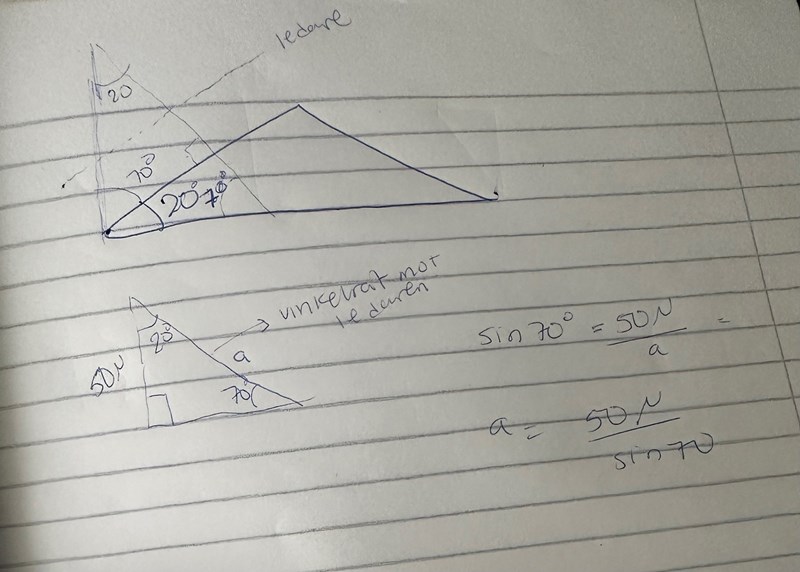 ledare
20
70°
20°
70°
vinkelrät mot
ledaren
20°
50N
a
70°
sin 70° = 50N / a =
a = 50N / sin 70